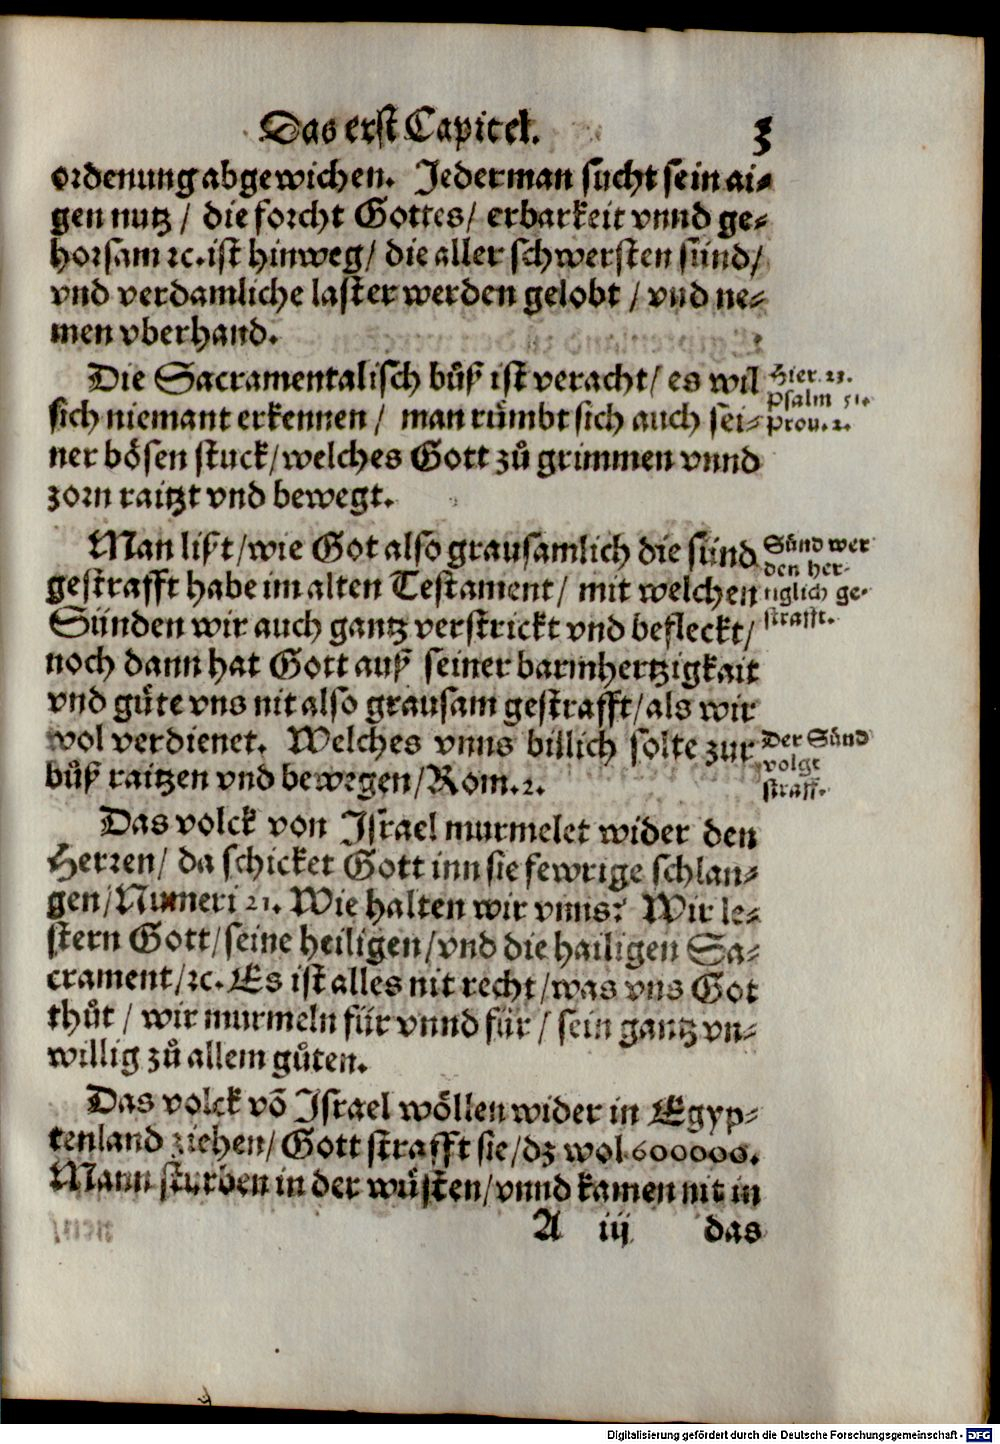 Das erst Capitel. 3
ordenung abgewichen. Jederman sucht sein ai-
gen nutz / die forcht Gottes / erbarkeit vnnd ge-
horsam ꝛc. ist hinweg / die aller schwersten sünd /
vnd verdamliche laster werden gelobt / vnd ne-
men vberhand.
Die Sacramentalisch bůß ist veracht / es wil
Hier. 23.
sich niemant erkennen / man rümbt sich auch sei-
Psalm 51.
Prou. 2.
ner bösen stuck / welches Gott zů grimmen vnnd
zorn raitzt vnd bewegt.
Man lißt / wie Got also grausamlich die sünd
Sünd wer
den her-
gestrafft habe im alten Testament / mit welchen
tiglich ge-
strafft.
Sünden wir auch gantz verstrickt vnd befleckt /
noch dann hat Gott auß seiner barmhertzigkait
vnd güte vns nit also grausam gestrafft / als wir
wol verdienet. Welches vnns billich solte zur
Der Sünd
volgt
straff.
bůß raitzen vnd bewegen / Rom. 2.
Das volck von Israel murmelet wider den
Herren / da schicket Gott inn sie fewrige schlan-
gen / Numeri 21. Wie halten wir vnns? Wir le-
stern Gott / seine heiligen / vnd die hailigen Sa-
crament / ꝛc. Es ist alles nit recht / was vns Got
thůt / wir murmeln für vnnd für / sein gantz vn-
willig zů allem gůten.
Das volck võ Israel wöllen wider in Egyp-
tenland ziehen / Gott strafft sie / dz wol 600000.
Mann sturben in der wüsten / vnnd kamen nit in
A iij das
Digitalisierung gefördert durch die Deutsche Forschungsgemeinschaft - DFG